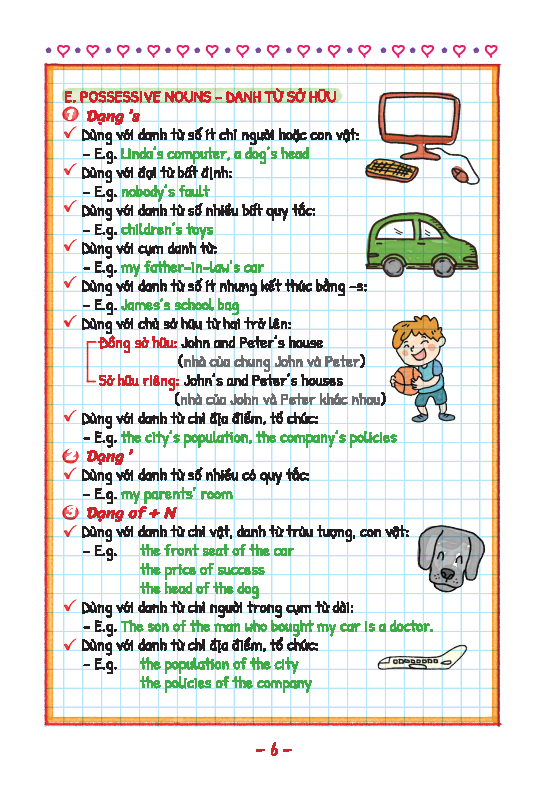 E. POSSESSIVE NOUNS – DANH TỪ SỞ HỮU
1 Dạng 's
✓ Dùng với danh từ số ít chỉ người hoặc con vật:
– E.g. Linda's computer, a dog's head
✓ Dùng với đại từ bất định:
– E.g. nobody's fault
✓ Dùng với danh từ số nhiều bất quy tắc:
– E.g. children's toys
✓ Dùng với cụm danh từ:
– E.g. my father-in-law's car
✓ Dùng với danh từ số ít nhưng kết thúc bằng –s:
– E.g. James's school bag
✓ Dùng với chủ sở hữu từ hai trở lên:
Đồng sở hữu: John and Peter's house
(nhà của chung John và Peter)
Sở hữu riêng: John's and Peter's houses
(nhà của John và Peter khác nhau)
✓ Dùng với danh từ chỉ địa điểm, tổ chức:
– E.g. the city's population, the company's policies
2 Dạng '
✓ Dùng với danh từ số nhiều có quy tắc:
– E.g. my parents' room
3 Dạng of + N
✓ Dùng với danh từ chỉ vật, danh từ trừu tượng, con vật:
– E.g. the front seat of the car
the price of success
the head of the dog
✓ Dùng với danh từ chỉ người trong cụm từ dài:
– E.g. The son of the man who bought my car is a doctor.
✓ Dùng với danh từ chỉ địa điểm, tổ chức:
– E.g. the population of the city
the policies of the company
– 6 –